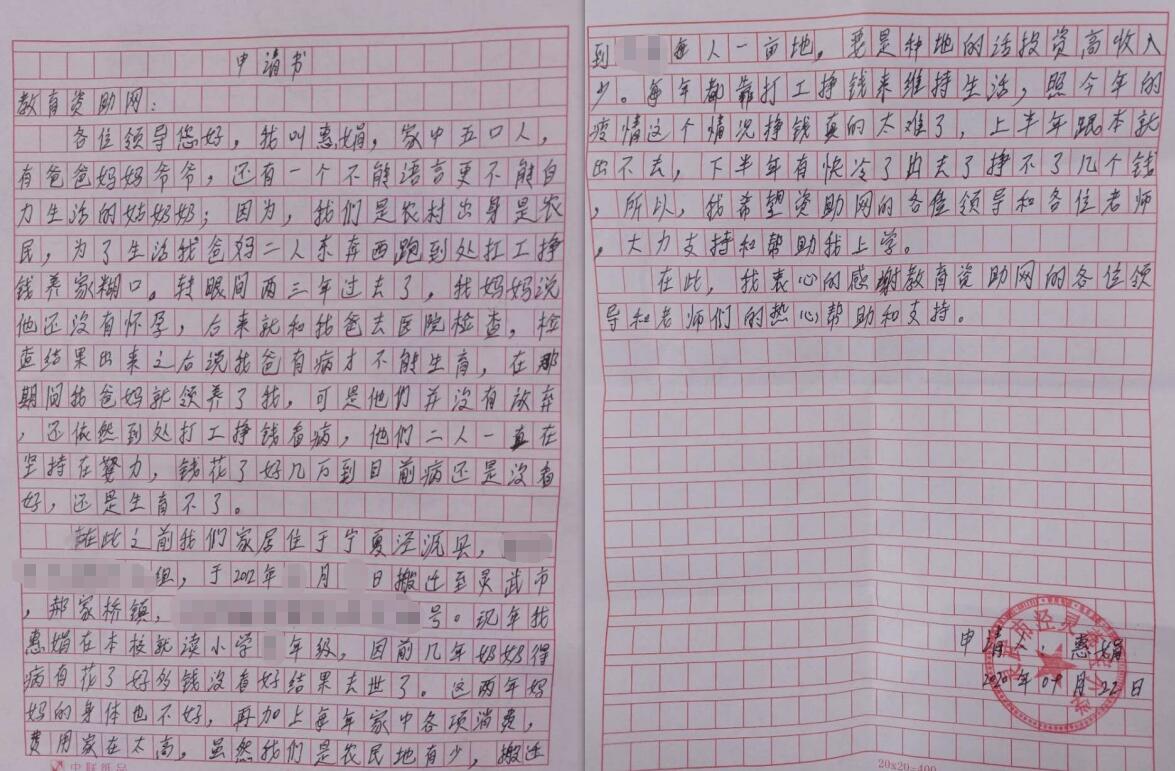 申请书
教育资助网：
各位领导您好，我叫惠娟，家中五口人，
有爸爸妈妈爷爷，还有一个不能语言更不能自
力生活的姑奶奶；因为，我们是农村出身是农
民，为了生活我爸妈二人东奔西跑到处打工挣
钱养家糊口。转眼间两三年过去了，我妈妈说
他还没有怀孕，后来就和我爸去医院检查，检
查结果出来之后说我爸有病才不能生育，在那
期间我爸妈就领养了我，可是他们并没有放弃
，还依然到处打工挣钱看病，他们二人一直在
坚持在努力，钱花了好几万到目前病还是没看
好，还是生育不了。
在此之前我们家居住于宁夏泾源县，
组，于2012年 月 日搬迁至灵武市
，郝家桥镇， 号。现年我
惠娟在本校就读小学 年级，因前几年奶奶得
病有花了好多钱没看好结果去世了。这两年妈
妈的身体也不好，再加上每年家中各项消费，
费用家在太高。虽然我们是农民地有少，搬迁
中联纸品
到 每人一亩地，要是种地的话投资高收入
少。每年都靠打工挣钱来维持生活，照今年的
疫情这个情况挣钱真的太难了，上半年跟本就
出不去，下半年有快冷了出去了挣不了几个钱
，所以，我希望资助网的各位领导和各位老师
，大力支持和帮助我上学。
在此，我衷心的感谢教育资助网的各位领
导和老师们的热心帮助和支持。
申请人：惠娟
2020年09月22日
20x20=400